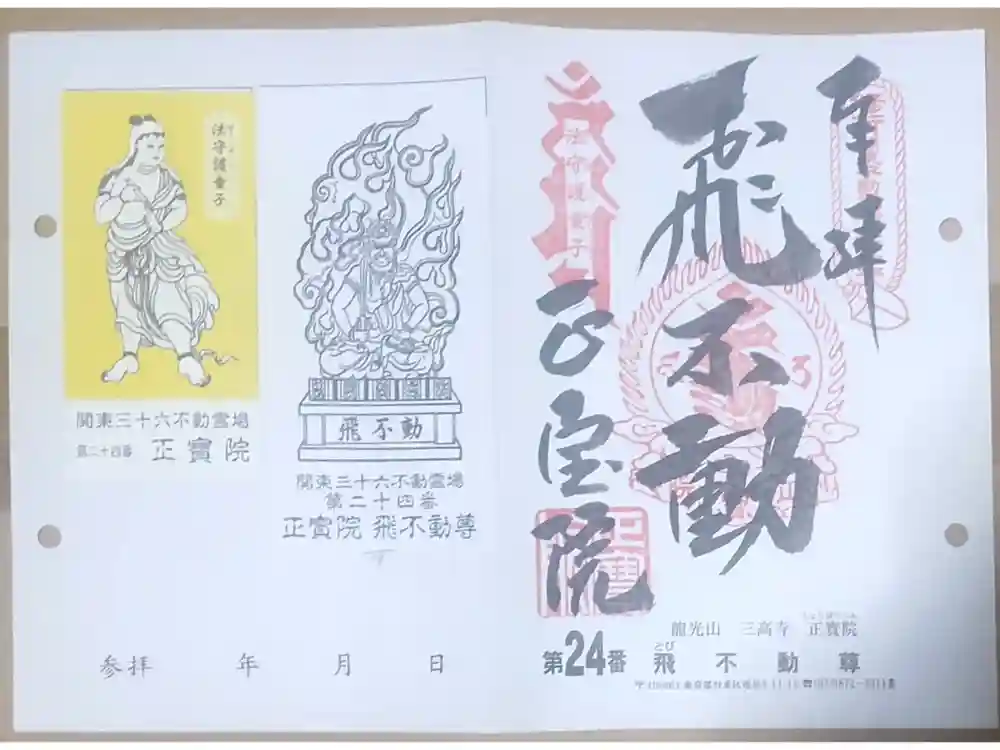 奉拝
飛不動
正宝院
法守護童子
正寶
龍光山 三高寺 正寶院
とび
第24番 飛不動尊
法守護童子
関東三十六不動霊場
第二十四番 正寳院
飛不動
関東三十六不動霊場
第二十四番
正寳院 飛不動尊
参拝 年 月 日